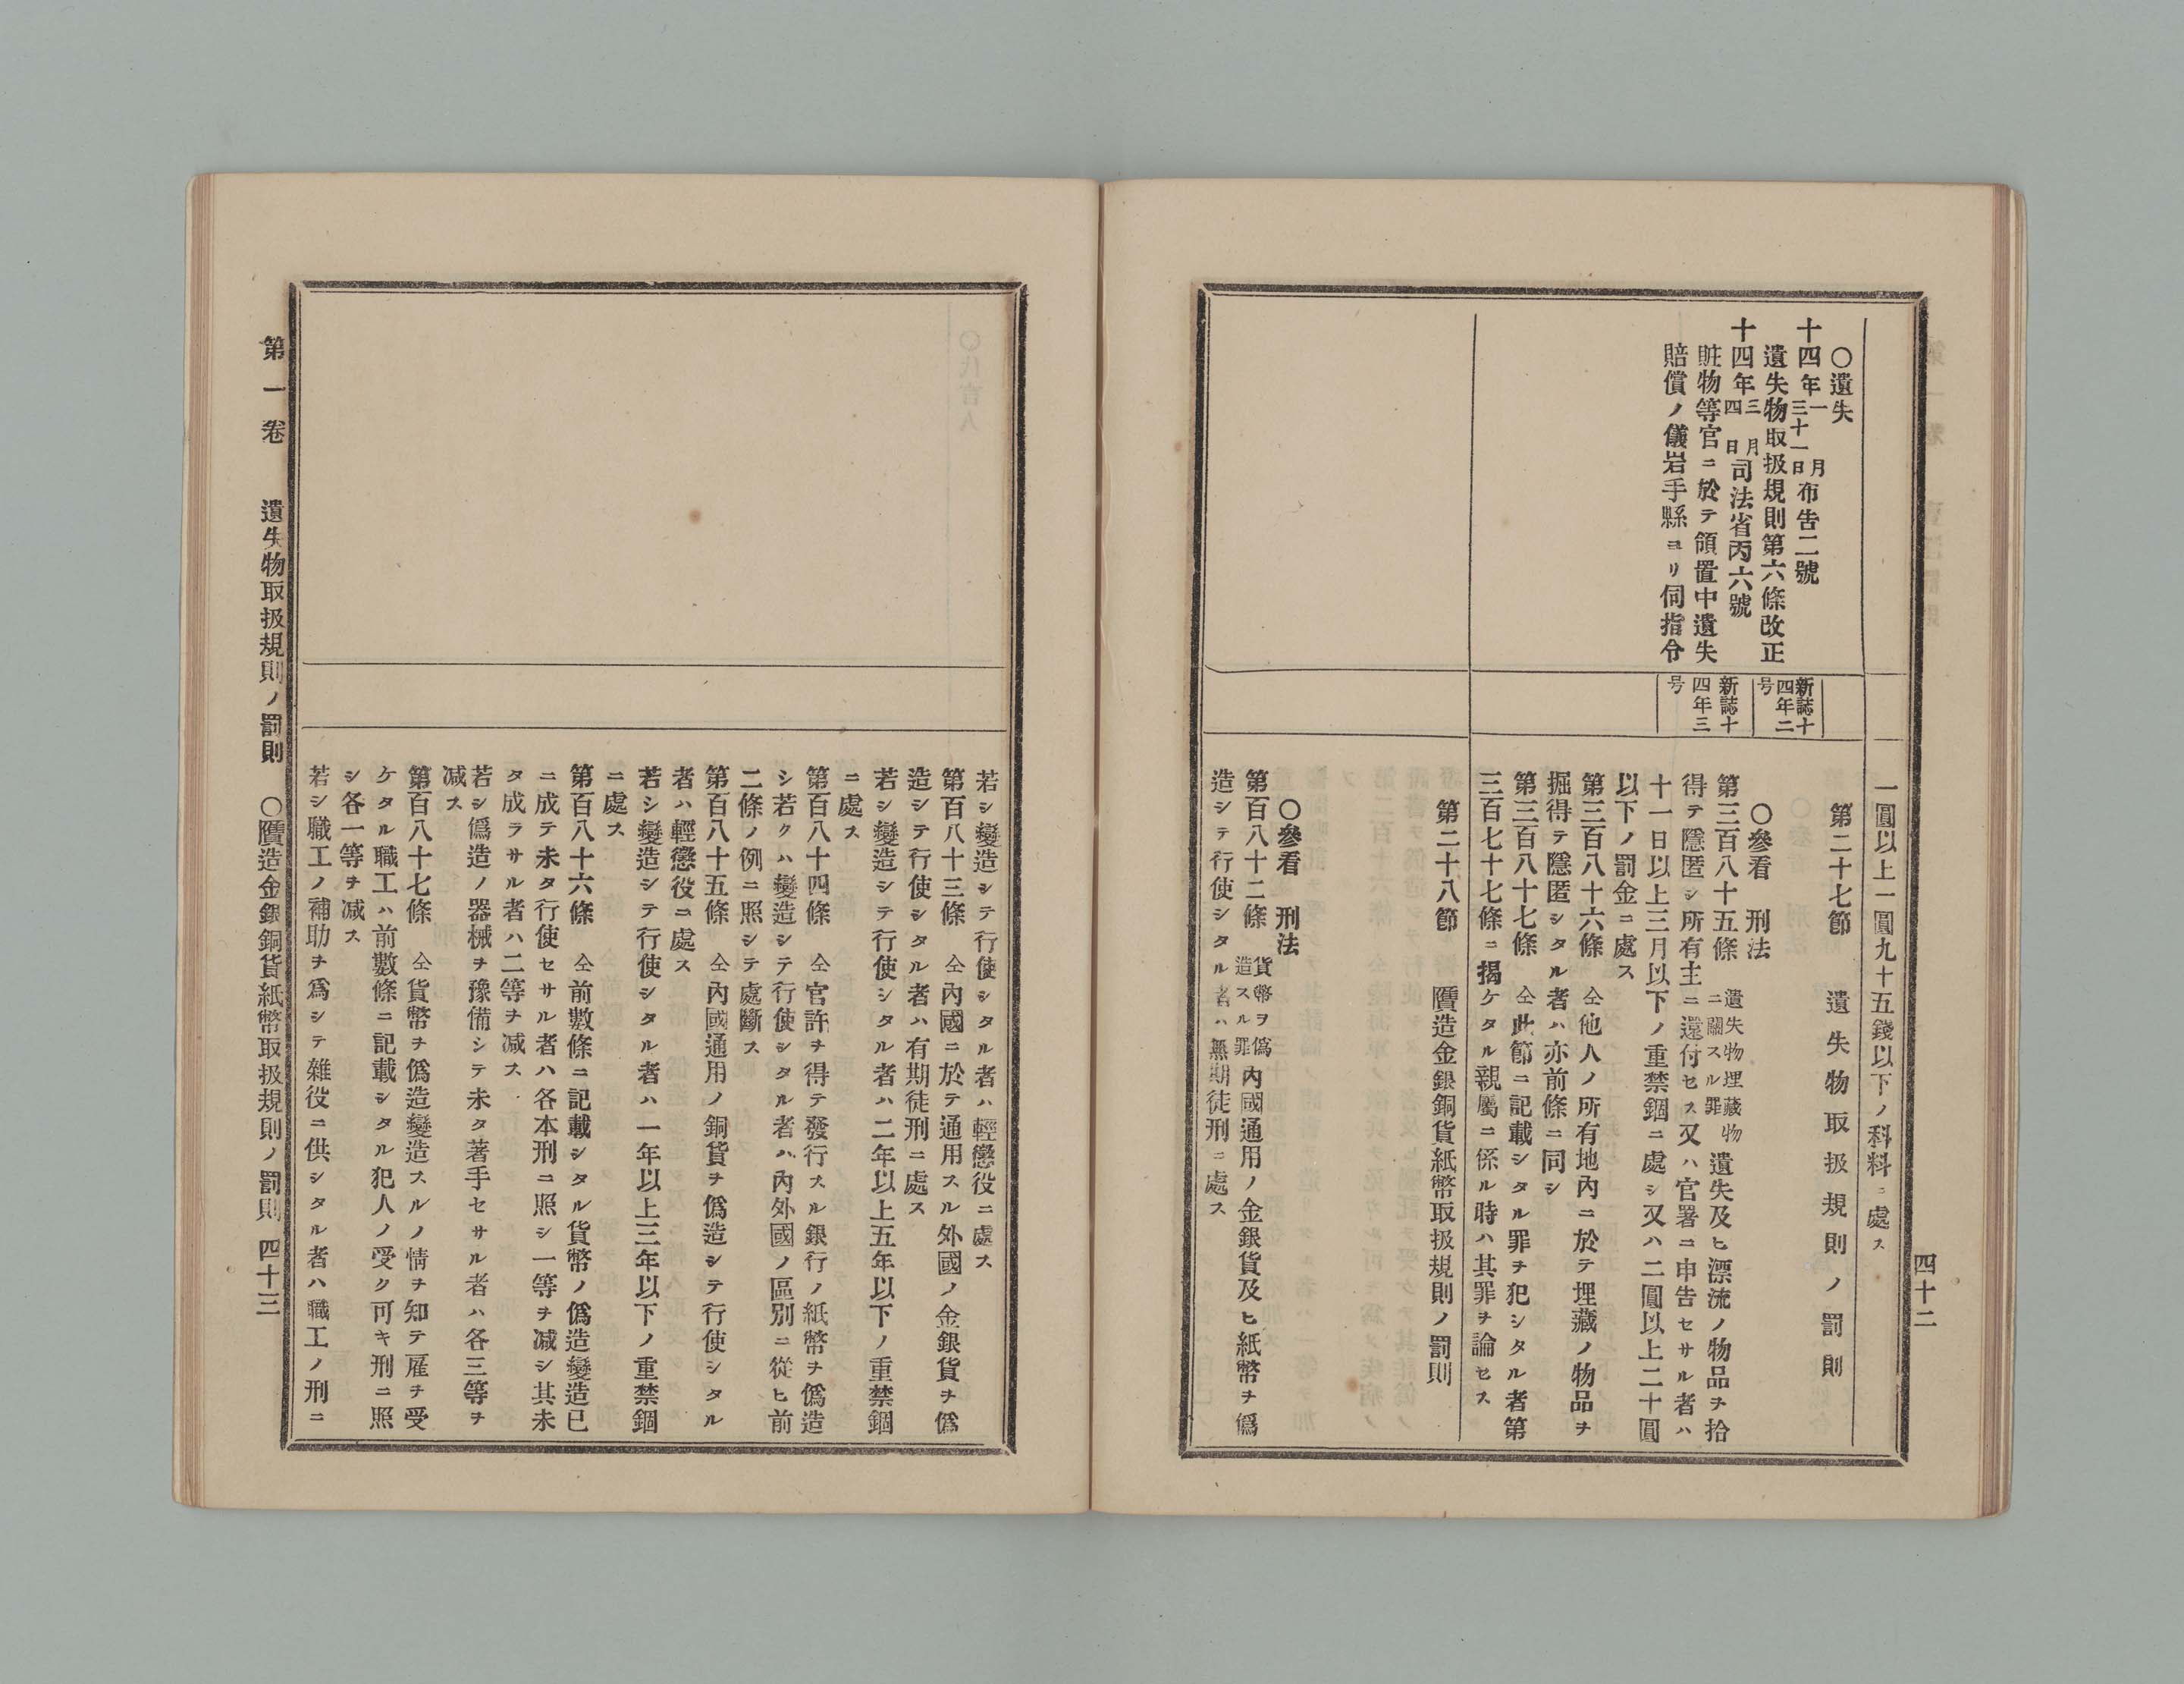 四十二
一圓以上一圓九十五錢以下ノ科料ニ處ス
○遺失
十四年一月三十一日布告二號
遺失物取扱規則第六條改正
十四年三月四日司法省丙六號
賍物等官ニ於テ領置中遺失
賠償ノ儀岩手縣ヨリ伺指令
新誌十
四年二
号
新誌十
四年三
号
第二十七節 遺失物取扱規則ノ罰則
○參看 刑法
第三百八十五條 遺失物埋藏物ニ關スル罪 遺失及ヒ漂流ノ物品ヲ拾
得テ隱匿シ所有主ニ還付セス又ハ官署ニ申告セサル者ハ
十一日以上三月以下ノ重禁錮ニ處シ又ハ二圓以上二十圓
以下ノ罰金ニ處ス
第三百八十六條 仝他人ノ所有地內ニ於テ埋藏ノ物品ヲ
掘得テ隱匿シタル者ハ亦前條ニ同シ
第三百八十七條 仝此節ニ記載シタル罪ヲ犯シタル者第
三百七十七條ニ揭ケタル親屬ニ係ル時ハ其罪ヲ論セス
第二十八節 贋造金銀銅貨紙幣取扱規則ノ罰則
○參看 刑法
第百八十二條 貨幣ヲ僞造スル罪 內國通用ノ金銀貨及ヒ紙幣ヲ僞
造シテ行使シタル者ハ無期徒刑ニ處ス
若シ變造シテ行使シタル者ハ輕懲役ニ處ス
第百八十三條 仝內國ニ於テ通用スル外國ノ金銀貨ヲ僞
造シテ行使シタル者ハ有期徒刑ニ處ス
若シ變造シテ行使シタル者ハ二年以上五年以下ノ重禁錮
ニ處ス
第百八十四條 仝官許ヲ得テ發行スル銀行ノ紙幣ヲ僞造
シ若クハ變造シテ行使シタル者ハ內外國ノ區別ニ從ヒ前
二條ノ例ニ照シテ處斷ス
第百八十五條 仝內國通用ノ銅貨ヲ僞造シテ行使シタル
者ハ輕懲役ニ處ス
若シ變造シテ行使シタル者ハ一年以上三年以下ノ重禁錮
ニ處ス
第百八十六條 仝前數條ニ記載シタル貨幣ノ僞造變造已
ニ成テ未タ行使セサル者ハ各本刑ニ照シ一等ヲ減シ其未
タ成ラサル者ハ二等ヲ減ス
若シ僞造ノ器械ヲ豫備シテ未タ著手セサル者ハ各三等ヲ
減ス
第百八十七條 仝貨幣ヲ僞造變造スルノ情ヲ知テ雇ヲ受
ケタル職工ハ前數條ニ記載シタル犯人ノ受ク可キ刑ニ照
シ各一等ヲ減ス
若シ職工ノ補助ヲ爲シテ雜役ニ供シタル者ハ職工ノ刑ニ
第一卷 遺失物取扱規則ノ罰則 ○贋造金銀銅貨紙幣取扱規則ノ罰則 四十三